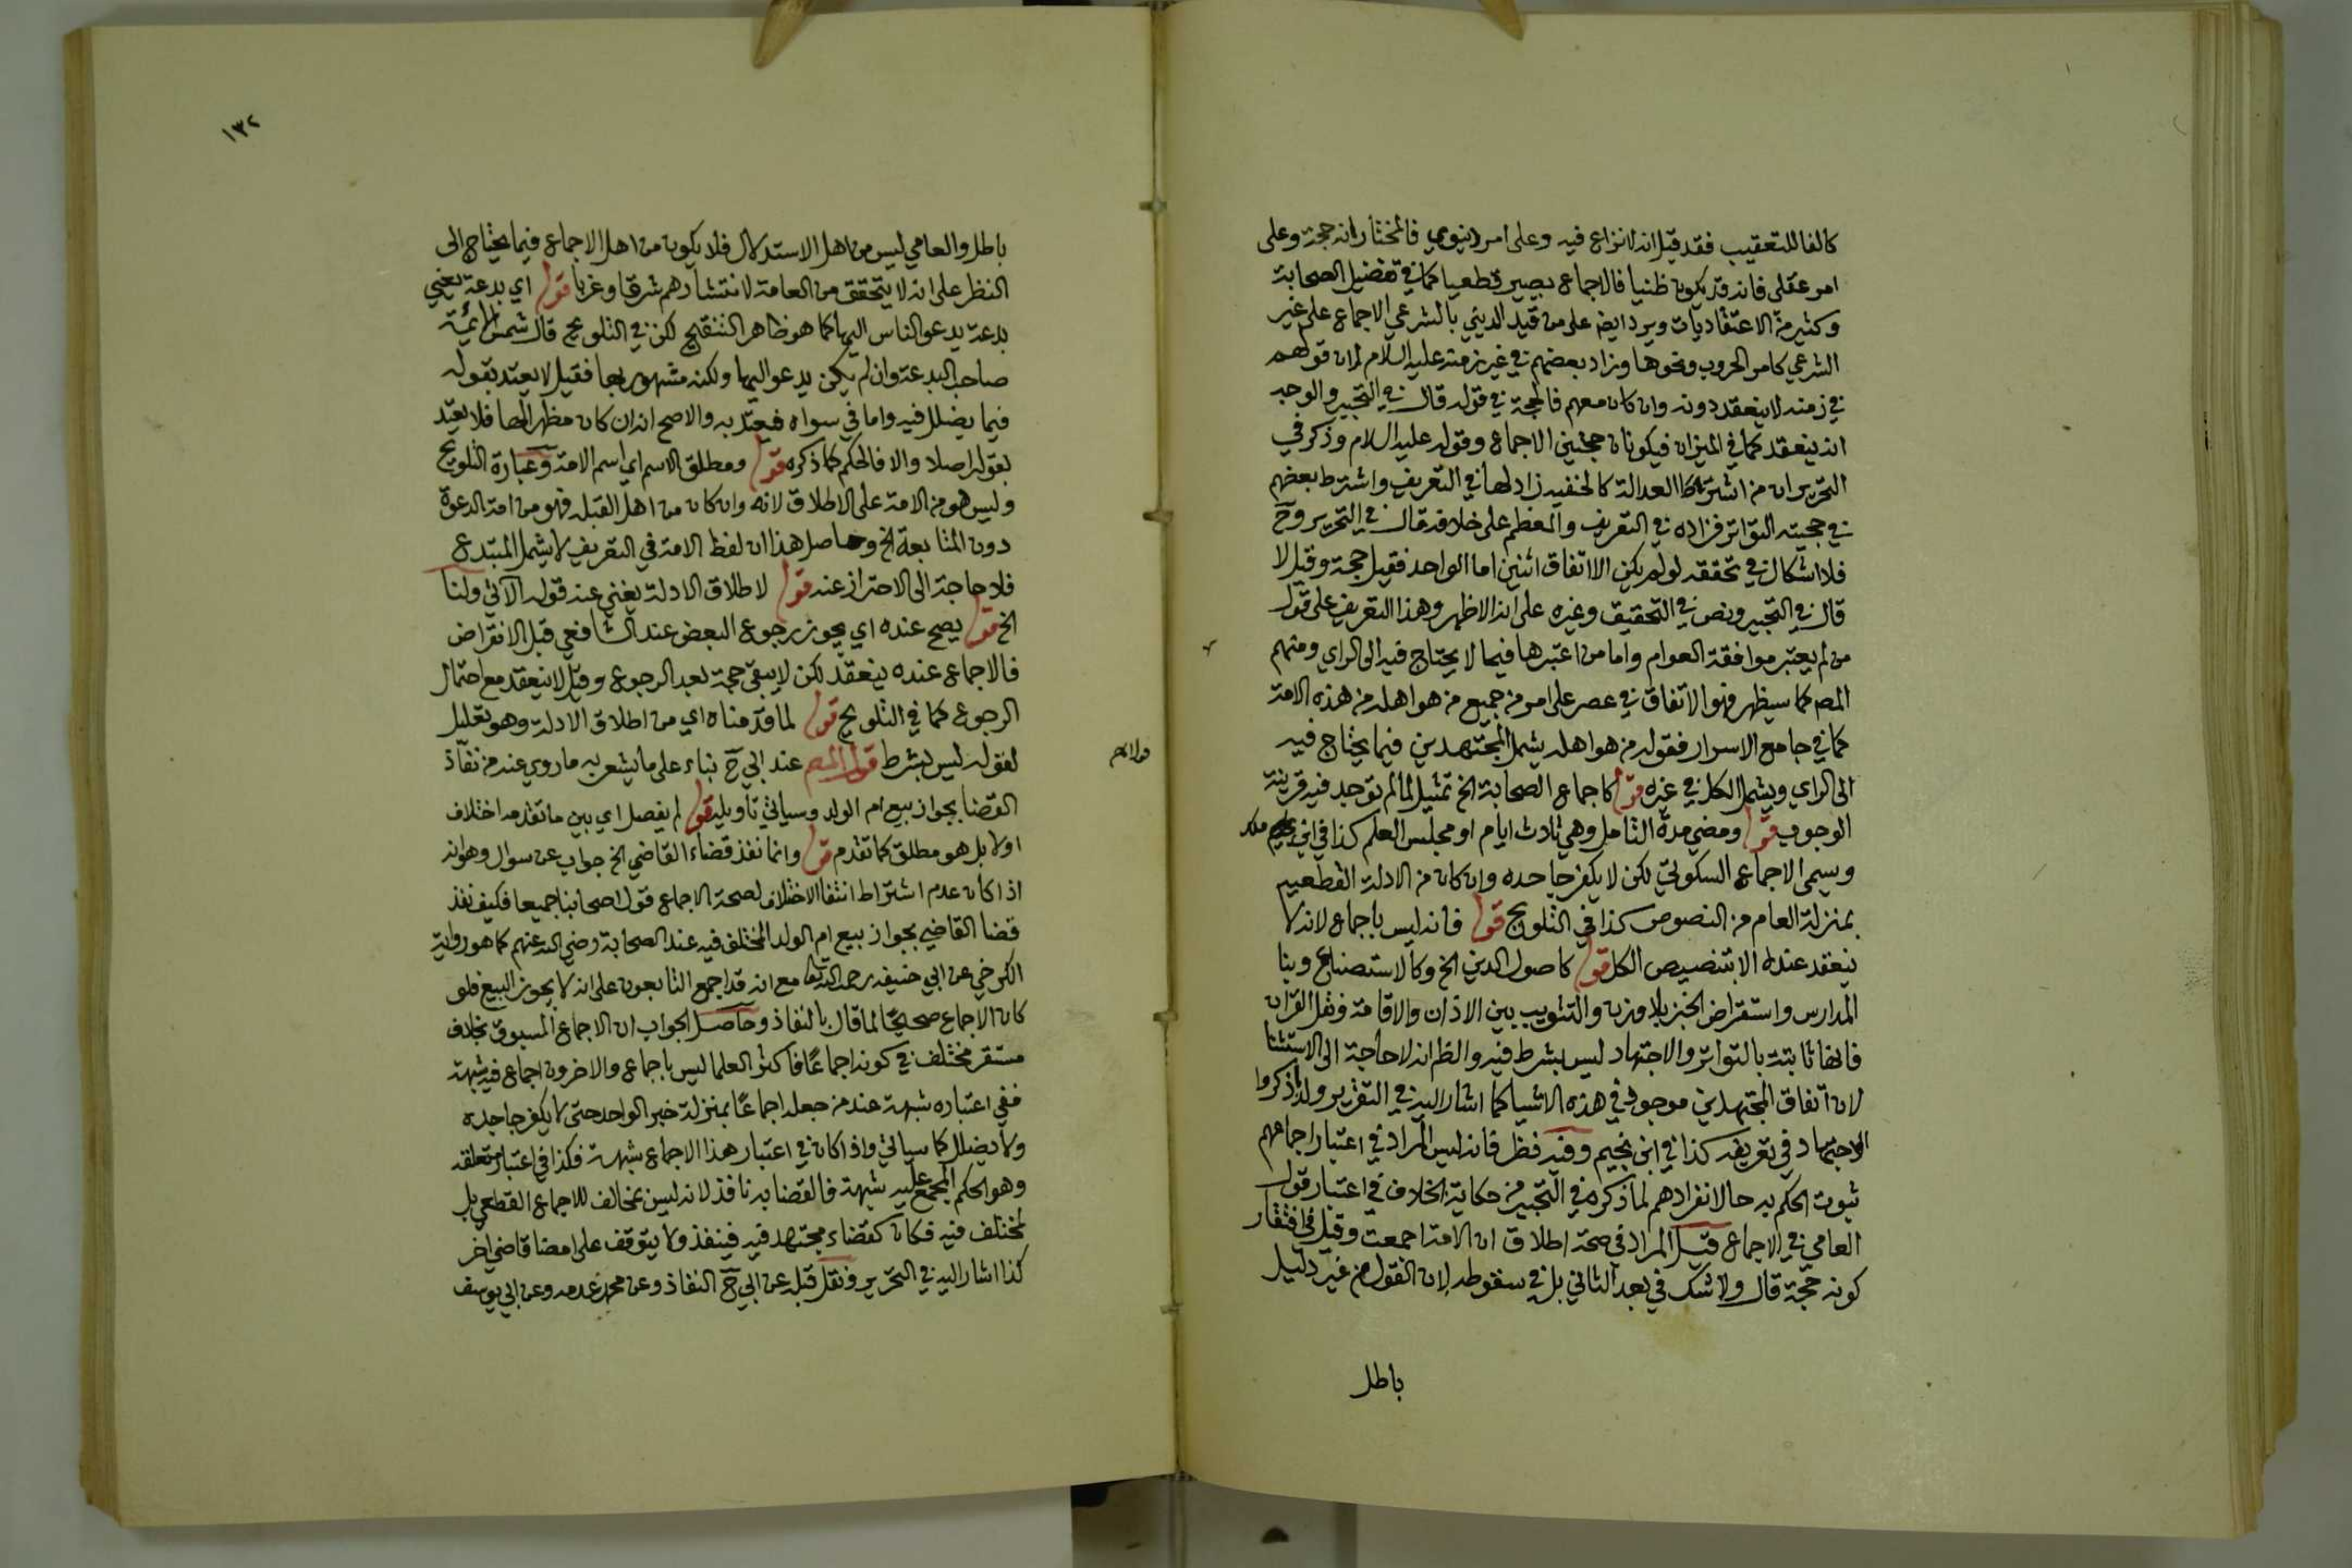 كالفا للتعقيب فقد قيل انه لا نزاع فيه وعلى امر دنيوي فالمختار انه حجة وعلى
امر عقلي فانه قد يكون ظنيا فالاجماع يصير قطعيا كما في تفضيل الصحابة
وكثير من الاعتقاديات ويرد ايضا على من قيد الديني بالشرعي الاجماع على غير
الشرعي كامر الحروب ونحوها وزاد بعضهم في غير زمنه عليه السلام لان قولهم
في زمنه لا ينعقد دونه وان كان معهم فالحجة في قوله قال في التحبير والوجه
انه ينعقد كما في الميزان فيكونان حجتين الاجماع وقوله عليه السلام وذكر في
التحرير ان من اشترط العدالة كالحنفيه زاد لها في التعريف واشترط بعضهم
في حجيته التواتر فزاده في التعريف والمعظم على خلافه قال في التحرير وح
فلا اشكال في تحققه لو لم يكن الا اتفاق اثنين اما الواحد فقيل حجة وقيل لا
قال في التحبير ونص في التحقيق وغيره على انه الاظهر وهذا التعريف على قول
من لم يعتبر موافقة العوام واما من اعتبرها فيما لا يحتاج فيه الى الراي ومنهم
المص كما سيظهر فهو الاتفاق في عصر على امر من جميع من هو اهله من هذه الامة
كما في جامع الاسرار فقوله من هو اهله يشمل المجتهدين فيما يحتاج فيه
الى الراي ويشمل الكل في غيره قوله كاجماع الصحابة الخ تمثيل لما لم توجد فيه قرينة
الوجوب قوله ومضي مدة التامل وهي ثلاث ايام او مجلس العلم كذا في ابن ملك
ويسمى الاجماع السكوتي لكن لا يكفر جاحده وان كان من الادلة القطعيه
بمنزلة العام من النصوص كذا في التلويح قوله فانه ليس باجماع لانه لا
ينعقد عنده الا بتنصيص الكل قوله كاصول الدين الخ وكالاستصناع وبنا
المدارس واستقراض الخبز بلا وزن والتثويب بين الاذان والاقامة ونقل القران
فانها ثابتة بالتواتر والاجتهاد ليس بشرط فيه والظ انه لا حاجة الى الاستثنا
لان اتفاق المجتهدين موجود في هذه الاشيا كما اشار اليه في التقرير ولذا ذكروا
الاجتهاد في تعريفه كذا في ابن نجيم وفيه نظر فانه ليس المراد في اعتبار اجماعهم
ثبوت الحكم به حال انفرادهم لما ذكره في التحبير من حكاية الخلاف في اعتبار قول
العامي في الاجماع قيل المراد في صحة اطلاق ان الامة اجمعت وقيل في افتقار
كونه حجة قال ولا شك في بعد الثاني بل في سقوطه لان القول من غير دليل
باطل
١٣٢
باطل والعامي ليس من اهل الاستدلال فلا يكون من اهل الاجماع فيما يحتاج الى
النظر على انه لا يتحقق من العامة لانتشارهم شرقا وغربا قوله اي بدعة يعني
بدعة يدعو الناس اليها كما هو ظاهر التنقيح لكن في التلويح قال شمس الائمة
صاحب البدعة وان لم يكن يدعو اليها ولكنه مشهور بها فقيل لا يعتد بقوله
فيما يضلل فيه واما في سواه فيعتد به والاصح انه ان كان مظهرا لها فلا يعتد
بقوله اصلا والا فالحكم كما ذكره قوله ومطلق الاسم اي اسم الامة وعبارة التلويح
وليس هو من الامة على الاطلاق لانه وان كان من اهل القبلة فهو من امة الدعوة
دون المتابعة الخ وحاصل هذا ان لفظ الامة في التعريف لا يشمل المبتدع
فلا حاجة الى الاحتراز عنه قوله لاطلاق الادلة يغني عنه قوله الاتي ولنا
الخ قوله يصح عنده اي يجوز رجوع البعض عند الشافعي قبل الانقراض
فالاجماع عنده ينعقد لكن لا يبقى حجة بعد الرجوع وقيل لا ينعقد مع احتمال
الرجوع كما في التلويح قوله لما قدمناه اي من اطلاق الادلة وهو تعليل
لقوله ليس بشرط قول المص عند ابي ح بناء على ما يشعر به ما روي عنه من نفاذ
القضا بجواز بيع ام الولد وسياتي تاويله قوله لم يفصل اي بين ما تقدمه اختلاف
اولا بل هو مطلق كما تقدم قوله وانما نفذ قضاء القاضي الخ جواب عن سوال وهو انه
اذا كان عدم اشتراط انتفا الاختلاف لصحة الاجماع قول اصحابنا جميعا فكيف نفذ
قضا القاضي بجواز بيع ام الولد المختلف فيه عند الصحابة رضي الله عنهم كما هو رواية
الكرخي عن ابي حنيفه رحمه الله تعا مع انه قد اجمع التابعون على انه لا يجوز البيع فلو
كان الاجماع صحيحا لما قال بالنفاذ وحاصل الجواب ان الاجماع المسبوق بخلاف
مستقر مختلف في كونه اجماعا فاكثر العلما ليس باجماع والاخرون اجماع فيه شبهة
ففي اعتباره شبهة عند من جعله اجماعا بمنزلة خبر الواحد حتى لا يكفر جاحده
ولا يضلل كما سياتي واذا كان في اعتبار هذا الاجماع شبهة فكذا في اعتبار متعلقه
وهو الحكم المجمع عليه شبهة فالقضا به نافذ لانه ليس بمخالف للاجماع القطعي بل
لمختلف فيه فكان كقضاء مجتهد فيه فينفذ ولا يتوقف على امضا قاضي اخر
كذا اشار اليه في التحرير ونقل قبله عن ابي ح النفاذ وعن محمد عدمه وعن ابي يوسف